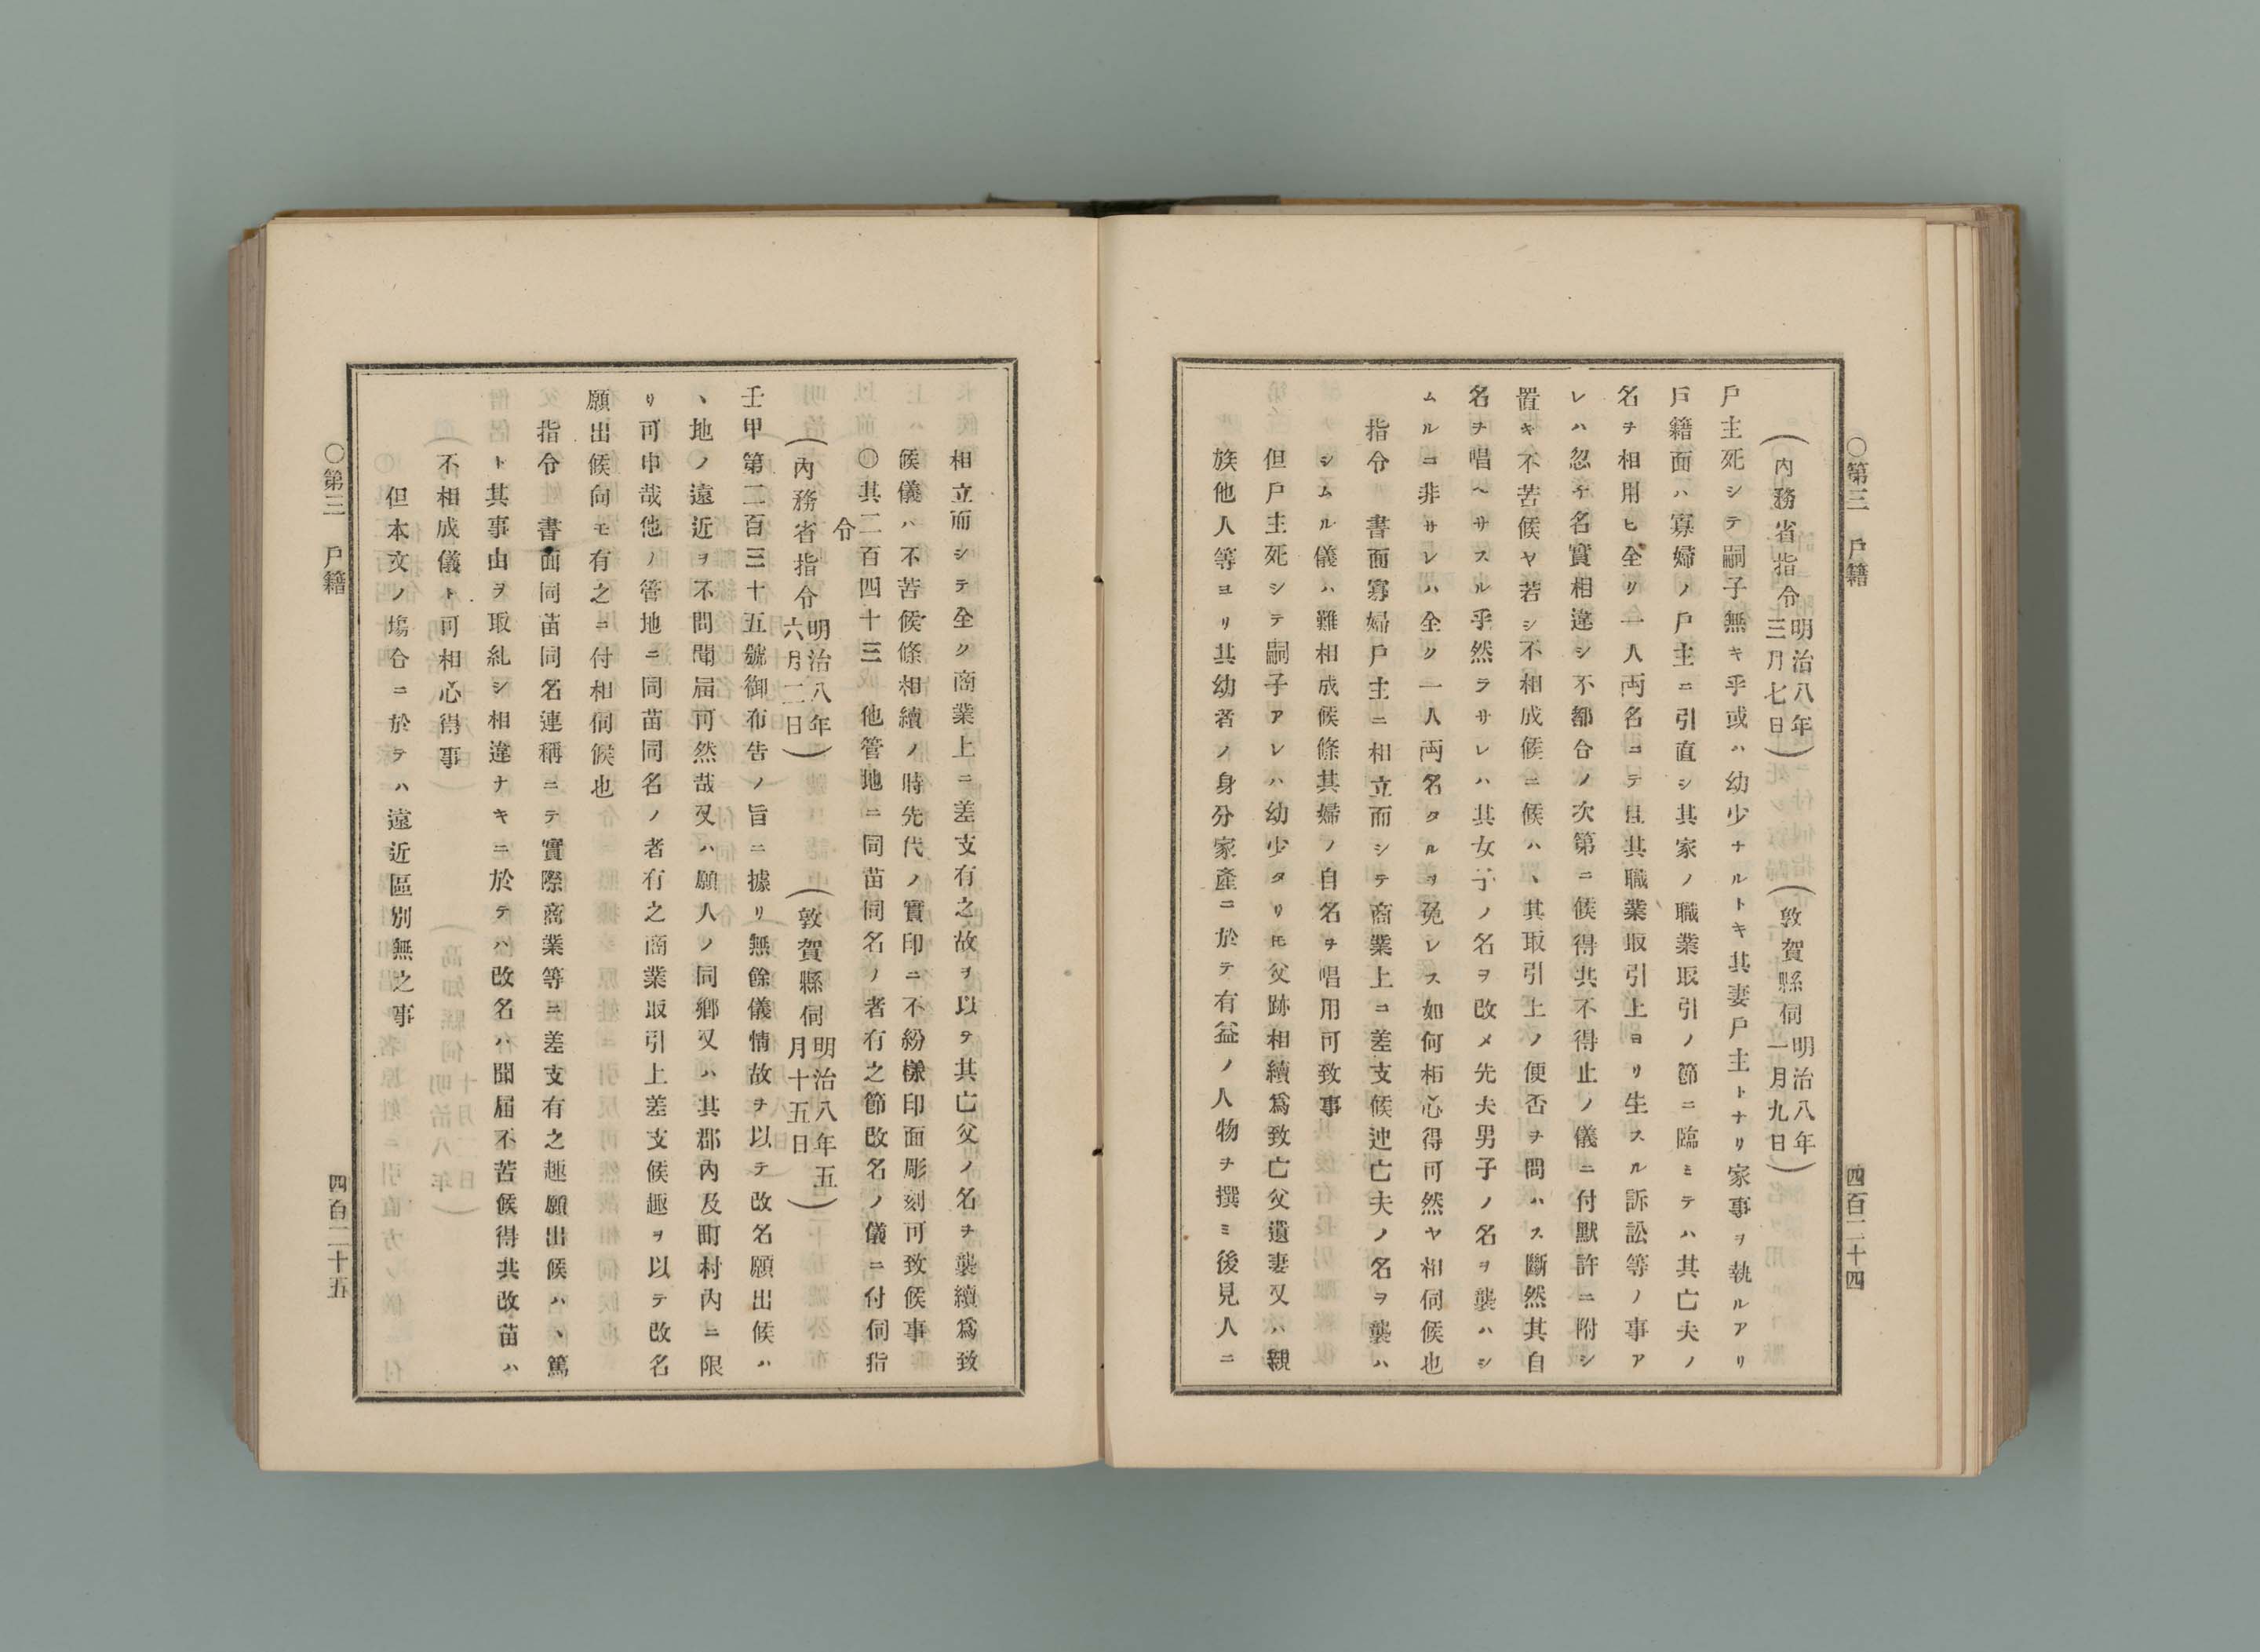 ○第三　戸籍
四百二十四
（內務省指令明治八年三月七日）（敦賀縣伺明治八年一月九日）
戸主死シテ嗣子無キ乎或ハ幼少ナルトキ其妻戸主トナリ家事ヲ執ルアリ
戸籍面ハ寡婦ノ戸主ニ引直シ其家ノ職業取引ノ節ニ臨ミテハ其亡夫ノ
名ヲ相用ヒ全ク一人両名ニテ且其職業取引上ヨリ生スル訴訟等ノ事ア
レハ忽チ名實相違シ不都合ノ次第ニ候得共不得止ノ儀ニ付默許ニ附シ
置キ不苦候ヤ若シ不相成候ニ候ハヽ其取引上ノ便否ヲ問ハス斷然其自
名ヲ唱ヘサスル乎然ラサレハ其女子ノ名ヲ改メ先夫男子ノ名ヲ襲ハシ
ムルニ非サレハ全ク一人両名タルヲ免レス如何相心得可然ヤ相伺候也
指令　書面寡婦戸主ニ相立而シテ商業上ニ差支候迚亡夫ノ名ヲ襲ハ
シムル儀ハ難相成候條其婦ノ自名ヲ唱用可致事
但戸主死シテ嗣子アレハ幼少タリ𪜈父跡相續爲致亡父遺妻又ハ親
族他人等ヨリ其幼者ノ身分家產ニ於テ有益ノ人物ヲ撰ミ後見人ニ
相立而シテ全ク商業上ニ差支有之故ヲ以テ其亡父ノ名ヲ襲續爲致
候儀ハ不苦候條相續ノ時先代ノ實印ニ不紛樣印面彫刻可致候事
○其二百四十三　他管地ニ同苗同名ノ者有之節改名ノ儀ニ付伺指
令
（內務省指令明治八年六月二日）（敦賀縣伺明治八年五月十五日）
壬申第二百三十五號御布告ノ旨ニ據リ無餘儀情故ヲ以テ改名願出候ハ
ヽ地ノ遠近ヲ不問聞届可然哉又ハ願人ノ同鄕又ハ其郡內及町村內ニ限
リ可申哉他ノ管地ニ同苗同名ノ者有之商業取引上差支候趣ヲ以テ改名
願出候向モ有之ニ付相伺候也
指令　書面同苗同名連稱ニテ實際商業等ニ差支有之趣願出候ハヽ篤
ト其事由ヲ取糺シ相違ナキニ於テハ改名ハ聞届不苦候得共改苗ハ
不相成儀ト可相心得事
但本文ノ塲合ニ於テハ遠近區別無之事
○第三　戸籍
四百二十五